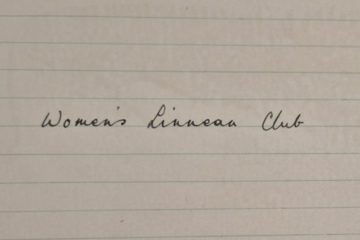 Women's Linnean Club